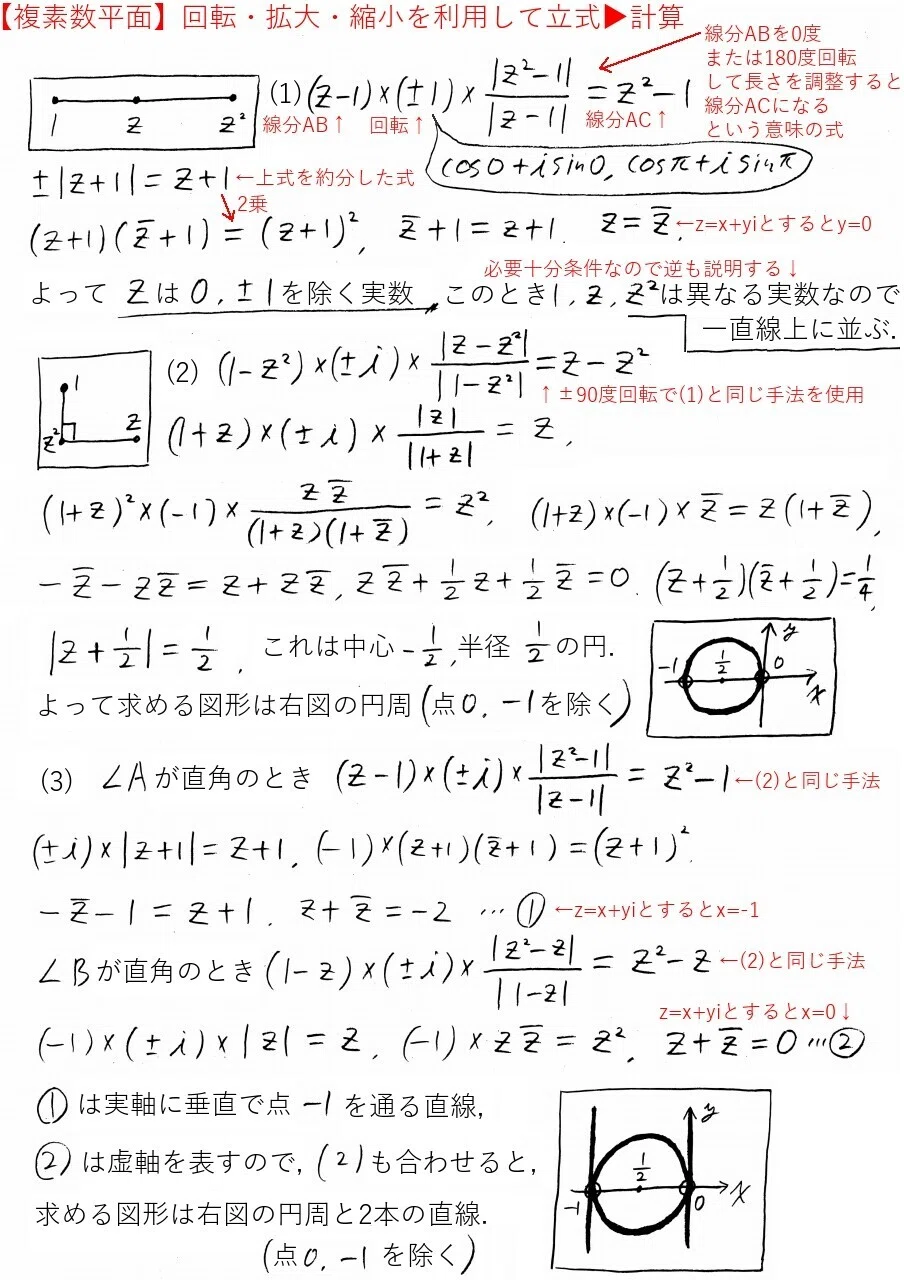 【複素数平面】回転・拡大・縮小を利用して立式▶計算
線分ABを0度
または180度回転
して長さを調整すると
線分ACになる
という意味の式
1 z z²
(1) (z-1)×(±1)×|z²-1|/|z-1| = z²-1
線分AB↑ 回転↑ 線分AC↑
cos0+isin0, cosπ+isinπ
±|z+1|=z+1 ←上式を約分した式
2乗
(z+1)(z̄+1)=(z+1)², z̄+1=z+1. z=z̄. ←z=x+yiとするとy=0
必要十分条件なので逆も説明する↓
よって zは0,±1を除く実数. このとき1,z,z²は異なる実数なので
一直線上に並ぶ.
1 z² z
(2) (1-z²)×(±i)×|z-z²|/|1-z²|=z-z²
↑±90度回転で(1)と同じ手法を使用
(1+z)×(±i)×|z|/|1+z| = z,
(1+z)²×(-1)×zz̄/(1+z)(1+z̄) = z², (1+z)×(-1)×z̄=z(1+z̄),
-z̄-zz̄=z+zz̄, zz̄+1/2z+1/2z̄=0. (z+1/2)(z̄+1/2)=1/4,
|z+1/2|=1/2, これは中心-1/2,半径 1/2の円.
よって求める図形は右図の円周(点0,-1を除く)
-1 1/2 0 x y
(3) ∠Aが直角のとき (z-1)×(±i)×|z²-1|/|z-1| = z²-1 ←(2)と同じ手法
(±i)×|z+1|=z+1, (-1)×(z+1)(z̄+1)=(z+1)².
-z̄-1=z+1. z+z̄=-2 …① ←z=x+yiとするとx=-1
∠Bが直角のとき (1-z)×(±i)×|z²-z|/|1-z| = z²-z ←(2)と同じ手法
z=x+yiとするとx=0↓
(-1)×(±i)×|z|=z, (-1)×zz̄=z², z+z̄=0 …②
①は実軸に垂直で点-1を通る直線,
②は虚軸を表すので,(2)も合わせると,
求める図形は右図の円周と2本の直線.
(点0,-1を除く)
-1 1/2 0 x y